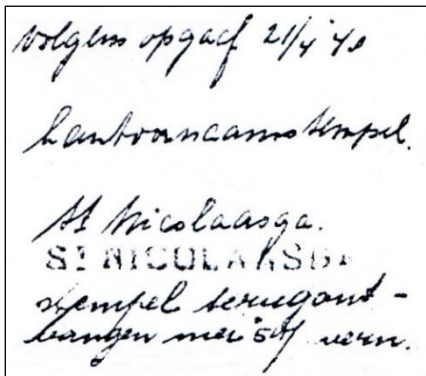 volgens opgaaf 21/4 '40
kantoornaamstempel.
St Nicolaasga.
ST NICOLAASGA
stempel terugont-
vangen mei '54 vern.